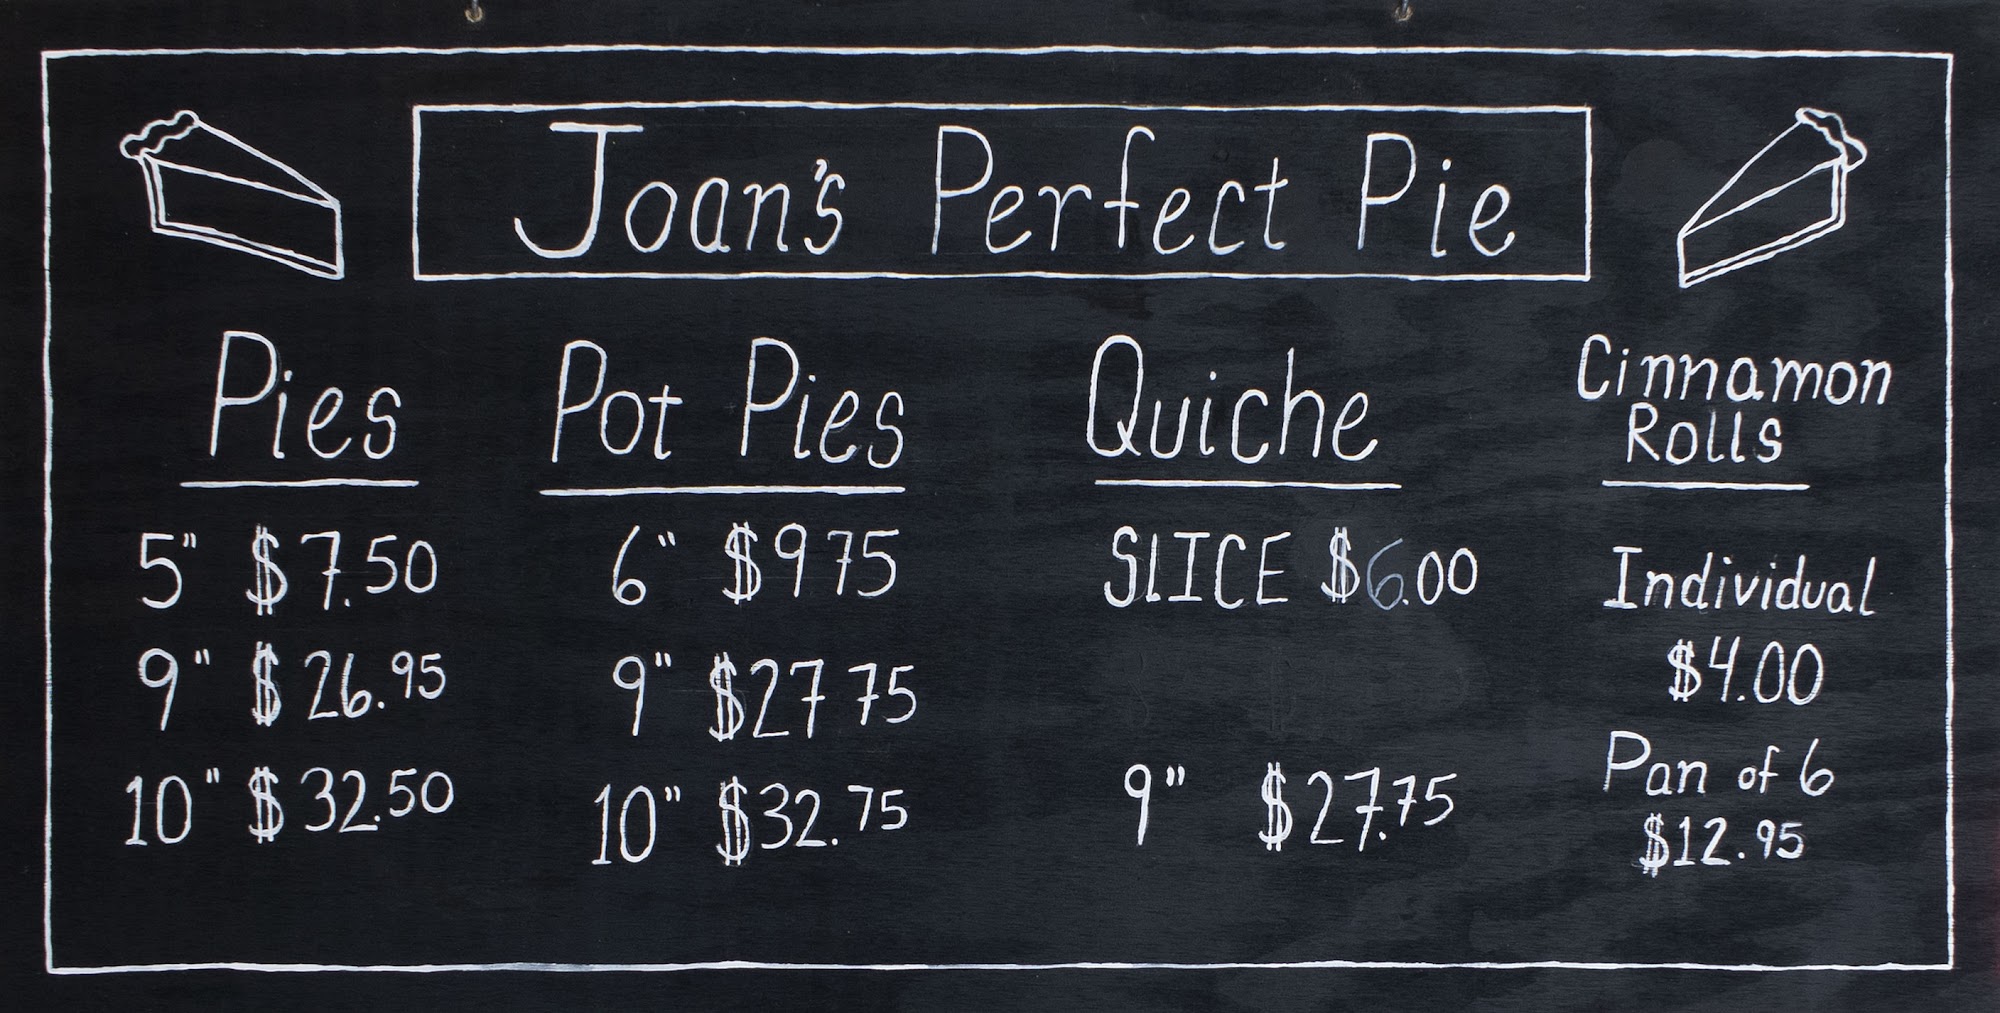 Joan's Perfect Pie
Pies
5" $7.50
9" $26.95
10" $32.50
Pot Pies
6" $9 75
9" $27 75
10" $32.75
Quiche
SLICE $6.00
9" $27.75
Cinnamon
Rolls
Individual
$4.00
Pan of 6
$12.95